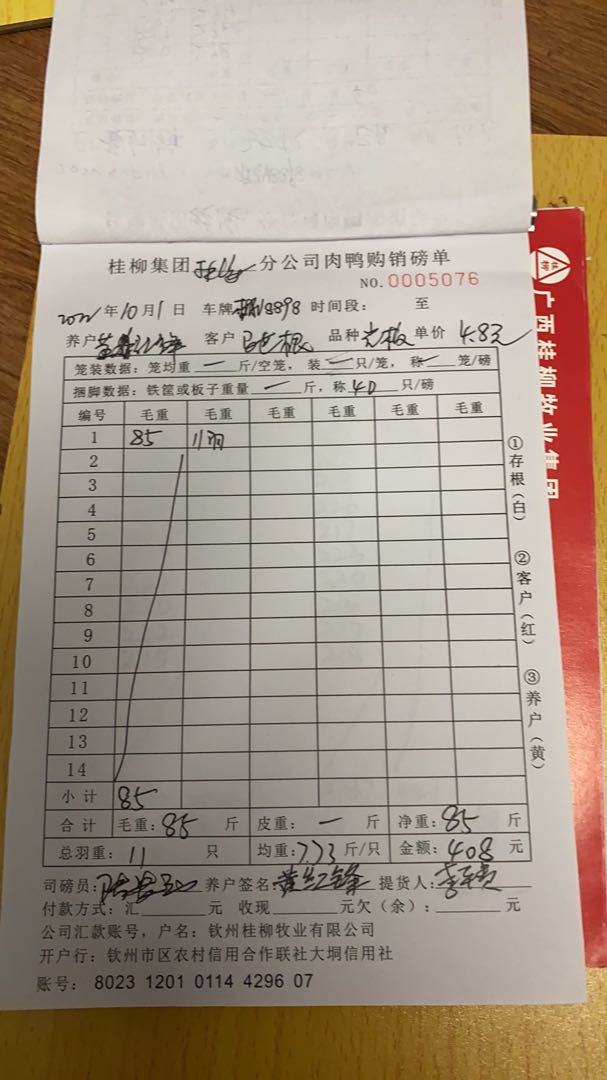 桂柳集团 分公司肉鸭购销磅单
NO.0005076
2022年10月1日 车牌 898 时间段： 至
养户 客户 品种 单价 4.8元
笼装数据：笼均重 一 斤/空笼，装 一 只/笼，称 一 笼/磅
捆脚数据：铁筐或板子重量 一 斤，称 40 只/磅
编号 毛重 毛重 毛重 毛重 毛重 毛重
1 85 11羽
2
3
4
5
6
7
8
9
10
11
12
13
14
小计 85
合计 毛重：85 斤 皮重：一 斤 净重：85 斤
总羽重：11 只 均重：7.73 斤/只 金额：408 元
司磅员： 养户签名 黄红锋 提货人：
付款方式：汇 元 收现 元欠（余）： 元
公司汇款账号，户名：钦州桂柳牧业有限公司
开户行：钦州市区农村信用合作联社大垌信用社
账号： 8023 1201 0114 4296 07
①存根（白）
②客户（红）
③养户（黄）
广西桂柳牧业集团